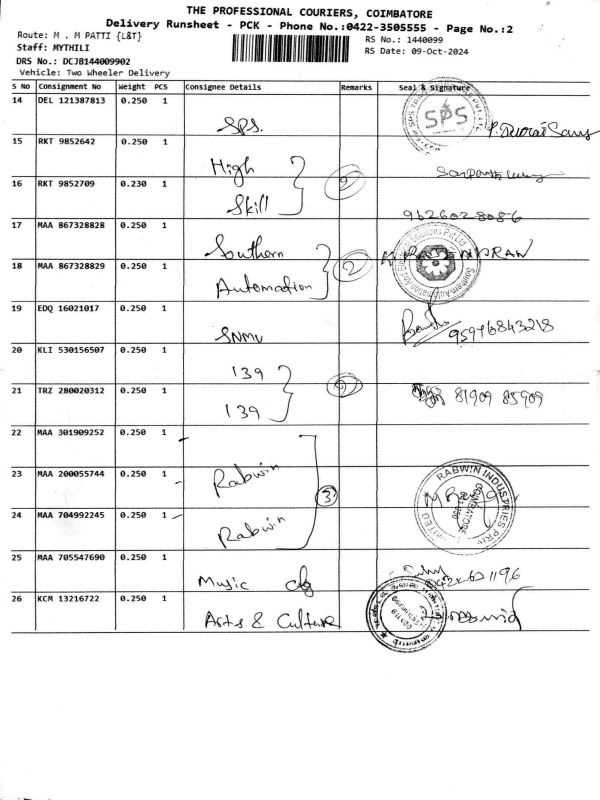 THE PROFESSIONAL COURIERS, COIMBATORE
Delivery Runsheet - PCK - Phone No.:0422-3505555 - Page No.:2
Route: M . M PATTI {L&T}
RS No.: 1440099
Staff: MYTHILI
RS Date: 09-Oct-2024
DRS No.: DCJB144009902
Vehicle: Two Wheeler Delivery
S No Consignment No Weight PCS Consignee Details Remarks Seal & Signature
14 DEL 121387813 0.250 1 SPS. SPS
15 RKT 9852642 0.250 1 High
16 RKT 9852709 0.230 1 Skill 2 9626028086
17 MAA 867328828 0.250 1 Southern
18 MAA 867328829 0.250 1 Automation 2
19 EDQ 16021017 0.250 1 SNMV 95976843218
20 KLI 530156507 0.250 1 139
21 TRZ 280020312 0.250 1 139 2 81909 85909
22 MAA 301909252 0.250 1
23 MAA 200055744 0.250 1 Rabwin 3 RABWIN INDUSTRIES COIMBATORE
24 MAA 704992245 0.250 1 Rabwin
25 MAA 705547690 0.250 1 Music clg
26 KCM 13216722 0.250 1 Arts & Culture